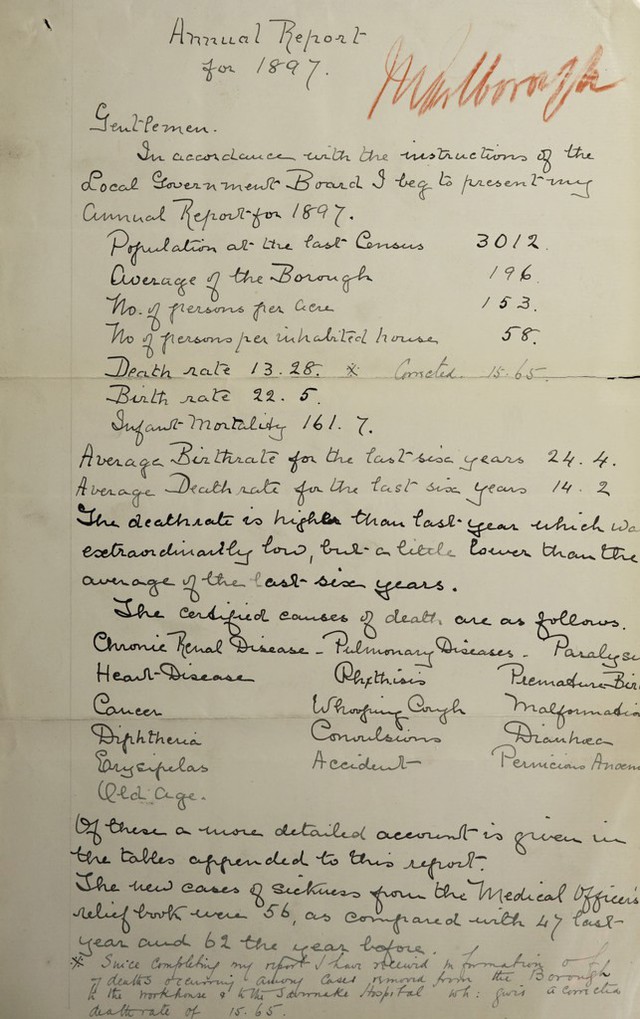 Annual Report
for 1897.
Marlborough
Gentlemen.
In accordance with the instructions of the
Local Government Board I beg to present my
Annual Report for 1897.
Population at the last Census 3012.
Average of the Borough 196
No. of persons per acre 153.
No of persons per inhabited house 58.
Death rate 13.28. * Corrected. 15.65.
Birth rate 22.5.
Infant Mortality 161.7.
Average Birthrate for the last six years 24.4.
Average Death rate for the last six years 14.2
The deathrate is higher than last year which wa
extraordinarily low, but a little lower than the
average of the last six years.
The certified causes of death are as follows.
Chronic Renal Disease - Pulmonary Diseases - Paralysi
Heart Disease Phthisis Premature Bir
Cancer Whooping Cough Malformatio
Diphtheria Convulsions Diarrhœa
Erysipelas Accident Pernicious Anaem
Old Age.
Of these a more detailed account is given in
the tables appended to this report.
The new cases of sickness from the Medical Officer's
relief book were 56, as compared with 47 last
year and 62 the year before.
* Since completing my report I have received information of
7 deaths occurring among cases removed from the Borough
to the workhouse & to the Savernake Hospital wh: gives a corrected
deathrate of 15.65.